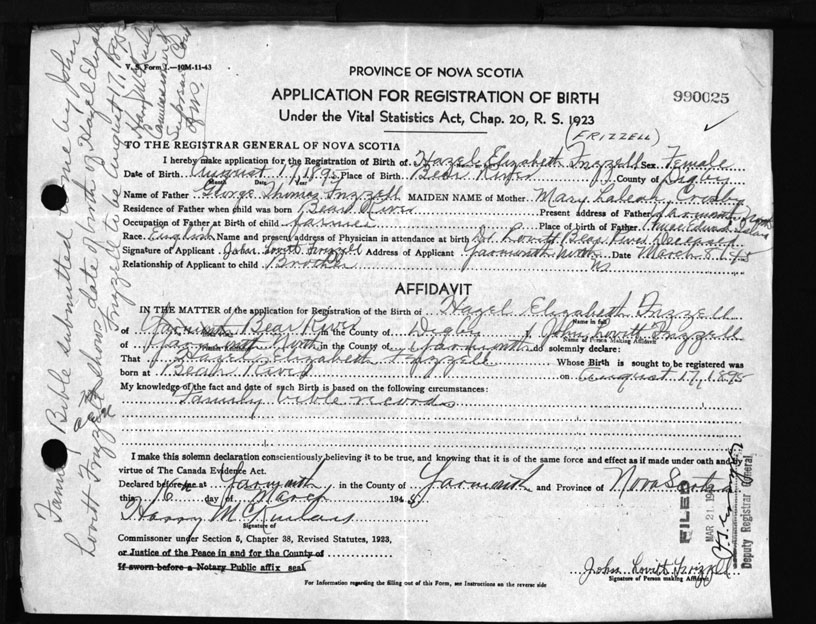 V. S. Form 1.—10M-11-43
PROVINCE OF NOVA SCOTIA
APPLICATION FOR REGISTRATION OF BIRTH
990025
Under the Vital Statistics Act, Chap. 20, R. S. 1923
(FRIZZELL)
TO THE REGISTRAR GENERAL OF NOVA SCOTIA
I hereby make application for the Registration of Birth of Hazel Elizabeth Frizzell Sex Female
Date of Birth August 17, 1895 Place of Birth Bear River County of Digby
Month Date Year
Name of Father George Thomas Frizzell MAIDEN NAME of Mother Mary Crosby
Residence of Father when child was born Bear River Present address of Father
Occupation of Father at Birth of child farmer Place of birth of Father Prince Edward Island
Race English Name and present address of Physician in attendance at birth Dr Lovitt Bear River Deceased
Signature of Applicant John Lovitt Frizzell Address of Applicant Yarmouth North Date March 6 1945
Relationship of Applicant to child Brother N.S
AFFIDAVIT
IN THE MATTER of the application for Registration of the Birth of Hazel Elizabeth Frizzell
Name in full
of Bear River in the County of Digby I, John Lovitt Frizzell
Name of Person Making Affidavit
of Yarmouth North in the County of Yarmouth do solemnly declare:
That Hazel Elizabeth Frizzell Whose Birth is sought to be registered was
born at Bear River on August 17, 1895
My knowledge of the fact and date of such Birth is based on the following circumstances:
Family bible records
I make this solemn declaration conscientiously believing it to be true, and knowing that it is of the same force and effect as if made under oath and by
virtue of The Canada Evidence Act.
Declared before me at Yarmouth in the County of Yarmouth and Province of Nova Scotia
this 6th day of March 1945
Harry
Signature of
Commissioner under Section 5, Chapter 38, Revised Statutes, 1923,
or Justice of the Peace in and for the County of
if sworn before a Notary Public affix seal
John Lovitt Frizzell
Signature of Person making Affidavit
For Information regarding the filling out of this Form, see Instructions on the reverse side
FILED
MAR 21
Deputy Registrar General
Family Bible submitted to me by John
Lovitt Frizzell shows date of birth of Hazel Elizabeth
Frizzell to be August 17, 1895
Harry
Commissioner
Supreme Court